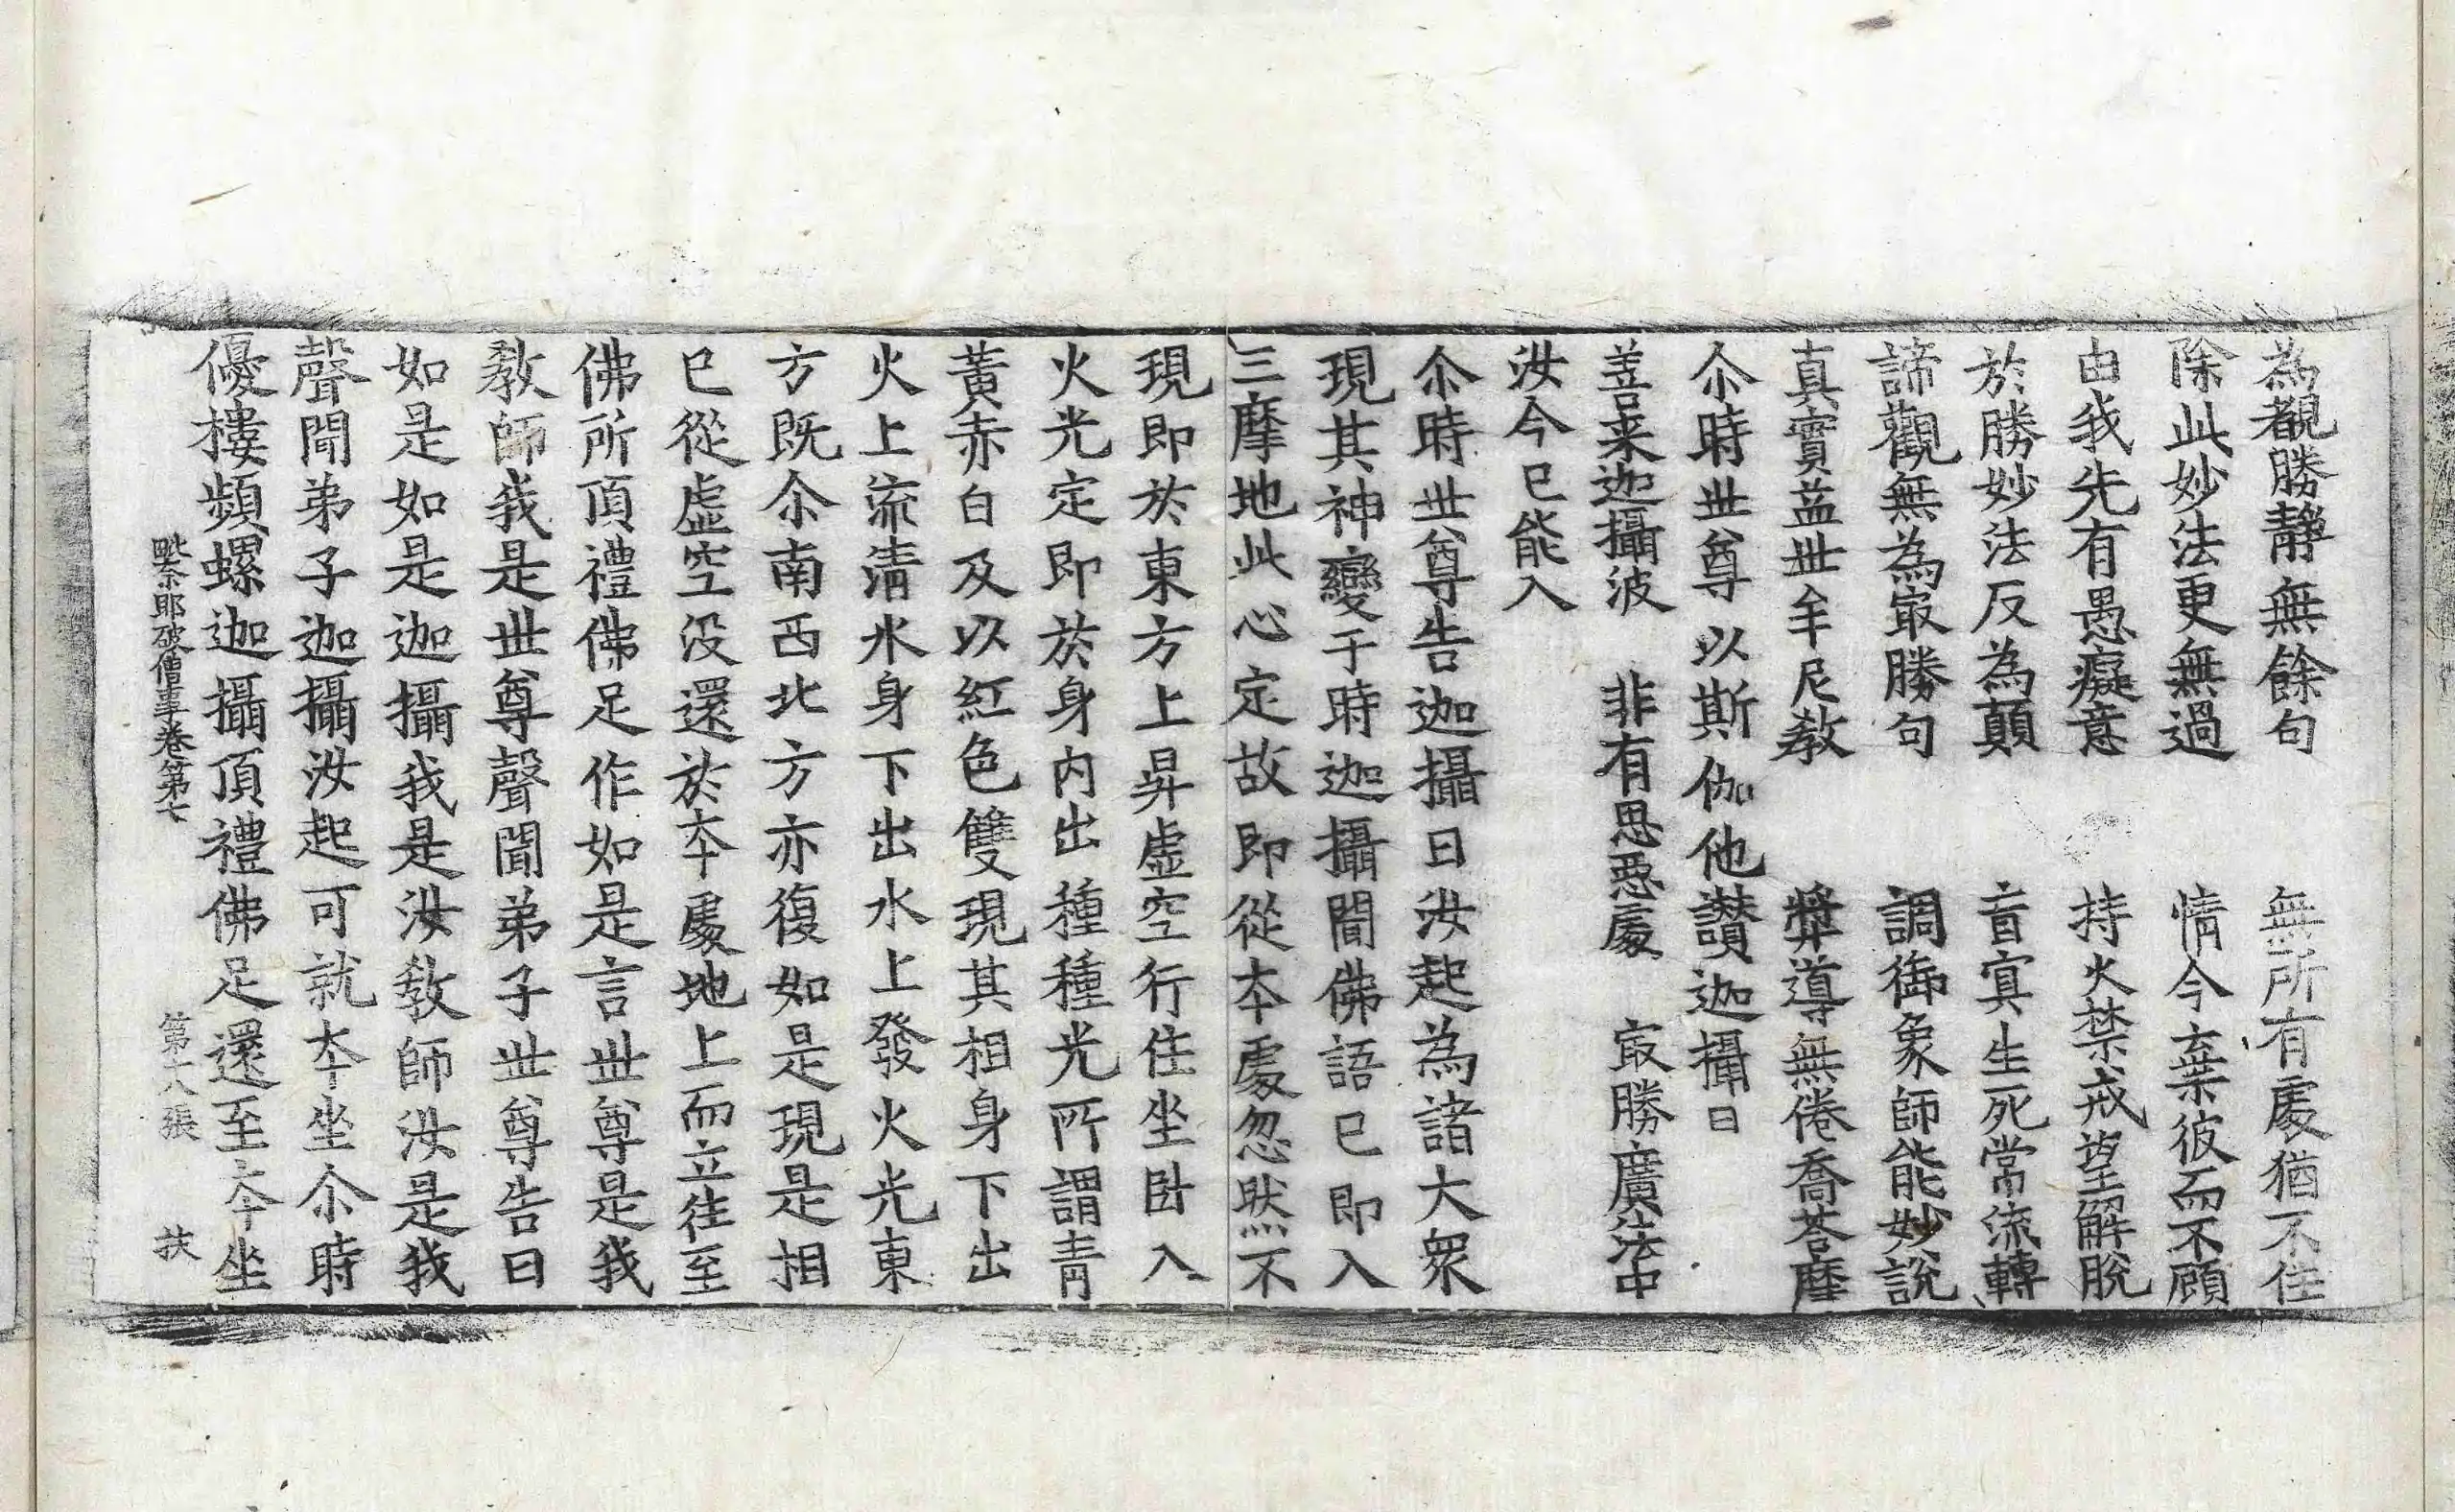 為覩勝静無餘句　無所有處猶不住
除此妙法更無過　情今棄彼而不顧
由我先有愚癡意　持火禁戒望解脫
於勝妙法反為顛　盲㝠生死常流轉
諦觀無為㝡勝句　調御象師能妙說
真實益丗牟尼教　弊導無倦喬荅摩
尒時丗尊以斯伽他讃迦攝曰
善来迦攝波　非有思惡處　㝡勝廣法中
汝今已能入
尒時丗尊告迦攝曰汝起為諸大衆
現其神變于時迦攝聞佛語已即入
三摩地此心定故即從夲處忽然不
現即於東方上昇虛空行住坐卧入
火光定即於身内出種種光所謂青
黃赤白及以紅色雙現其相身下出
火上流清水身下出水上發火光東
方既尒南西北方亦復如是現是相
已從虛空没還於夲處地上而立往至
佛所頂禮佛足作如是言丗尊是我
教師我是丗尊聲聞弟子丗尊告曰
如是如是迦攝我是汝教師汝是我
聲聞弟子迦攝汝起可就夲坐尒時
優樓頻螺迦攝頂禮佛足還至夲坐
毗奈耶破僧事卷第七　第十八張　扶